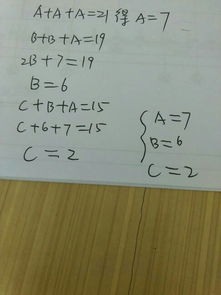 A+A+A=21 得 A=7
B+B+A=19
2B+7=19
B=6
C+B+A=15
C+6+7=15
C=2
A=7
B=6
C=2